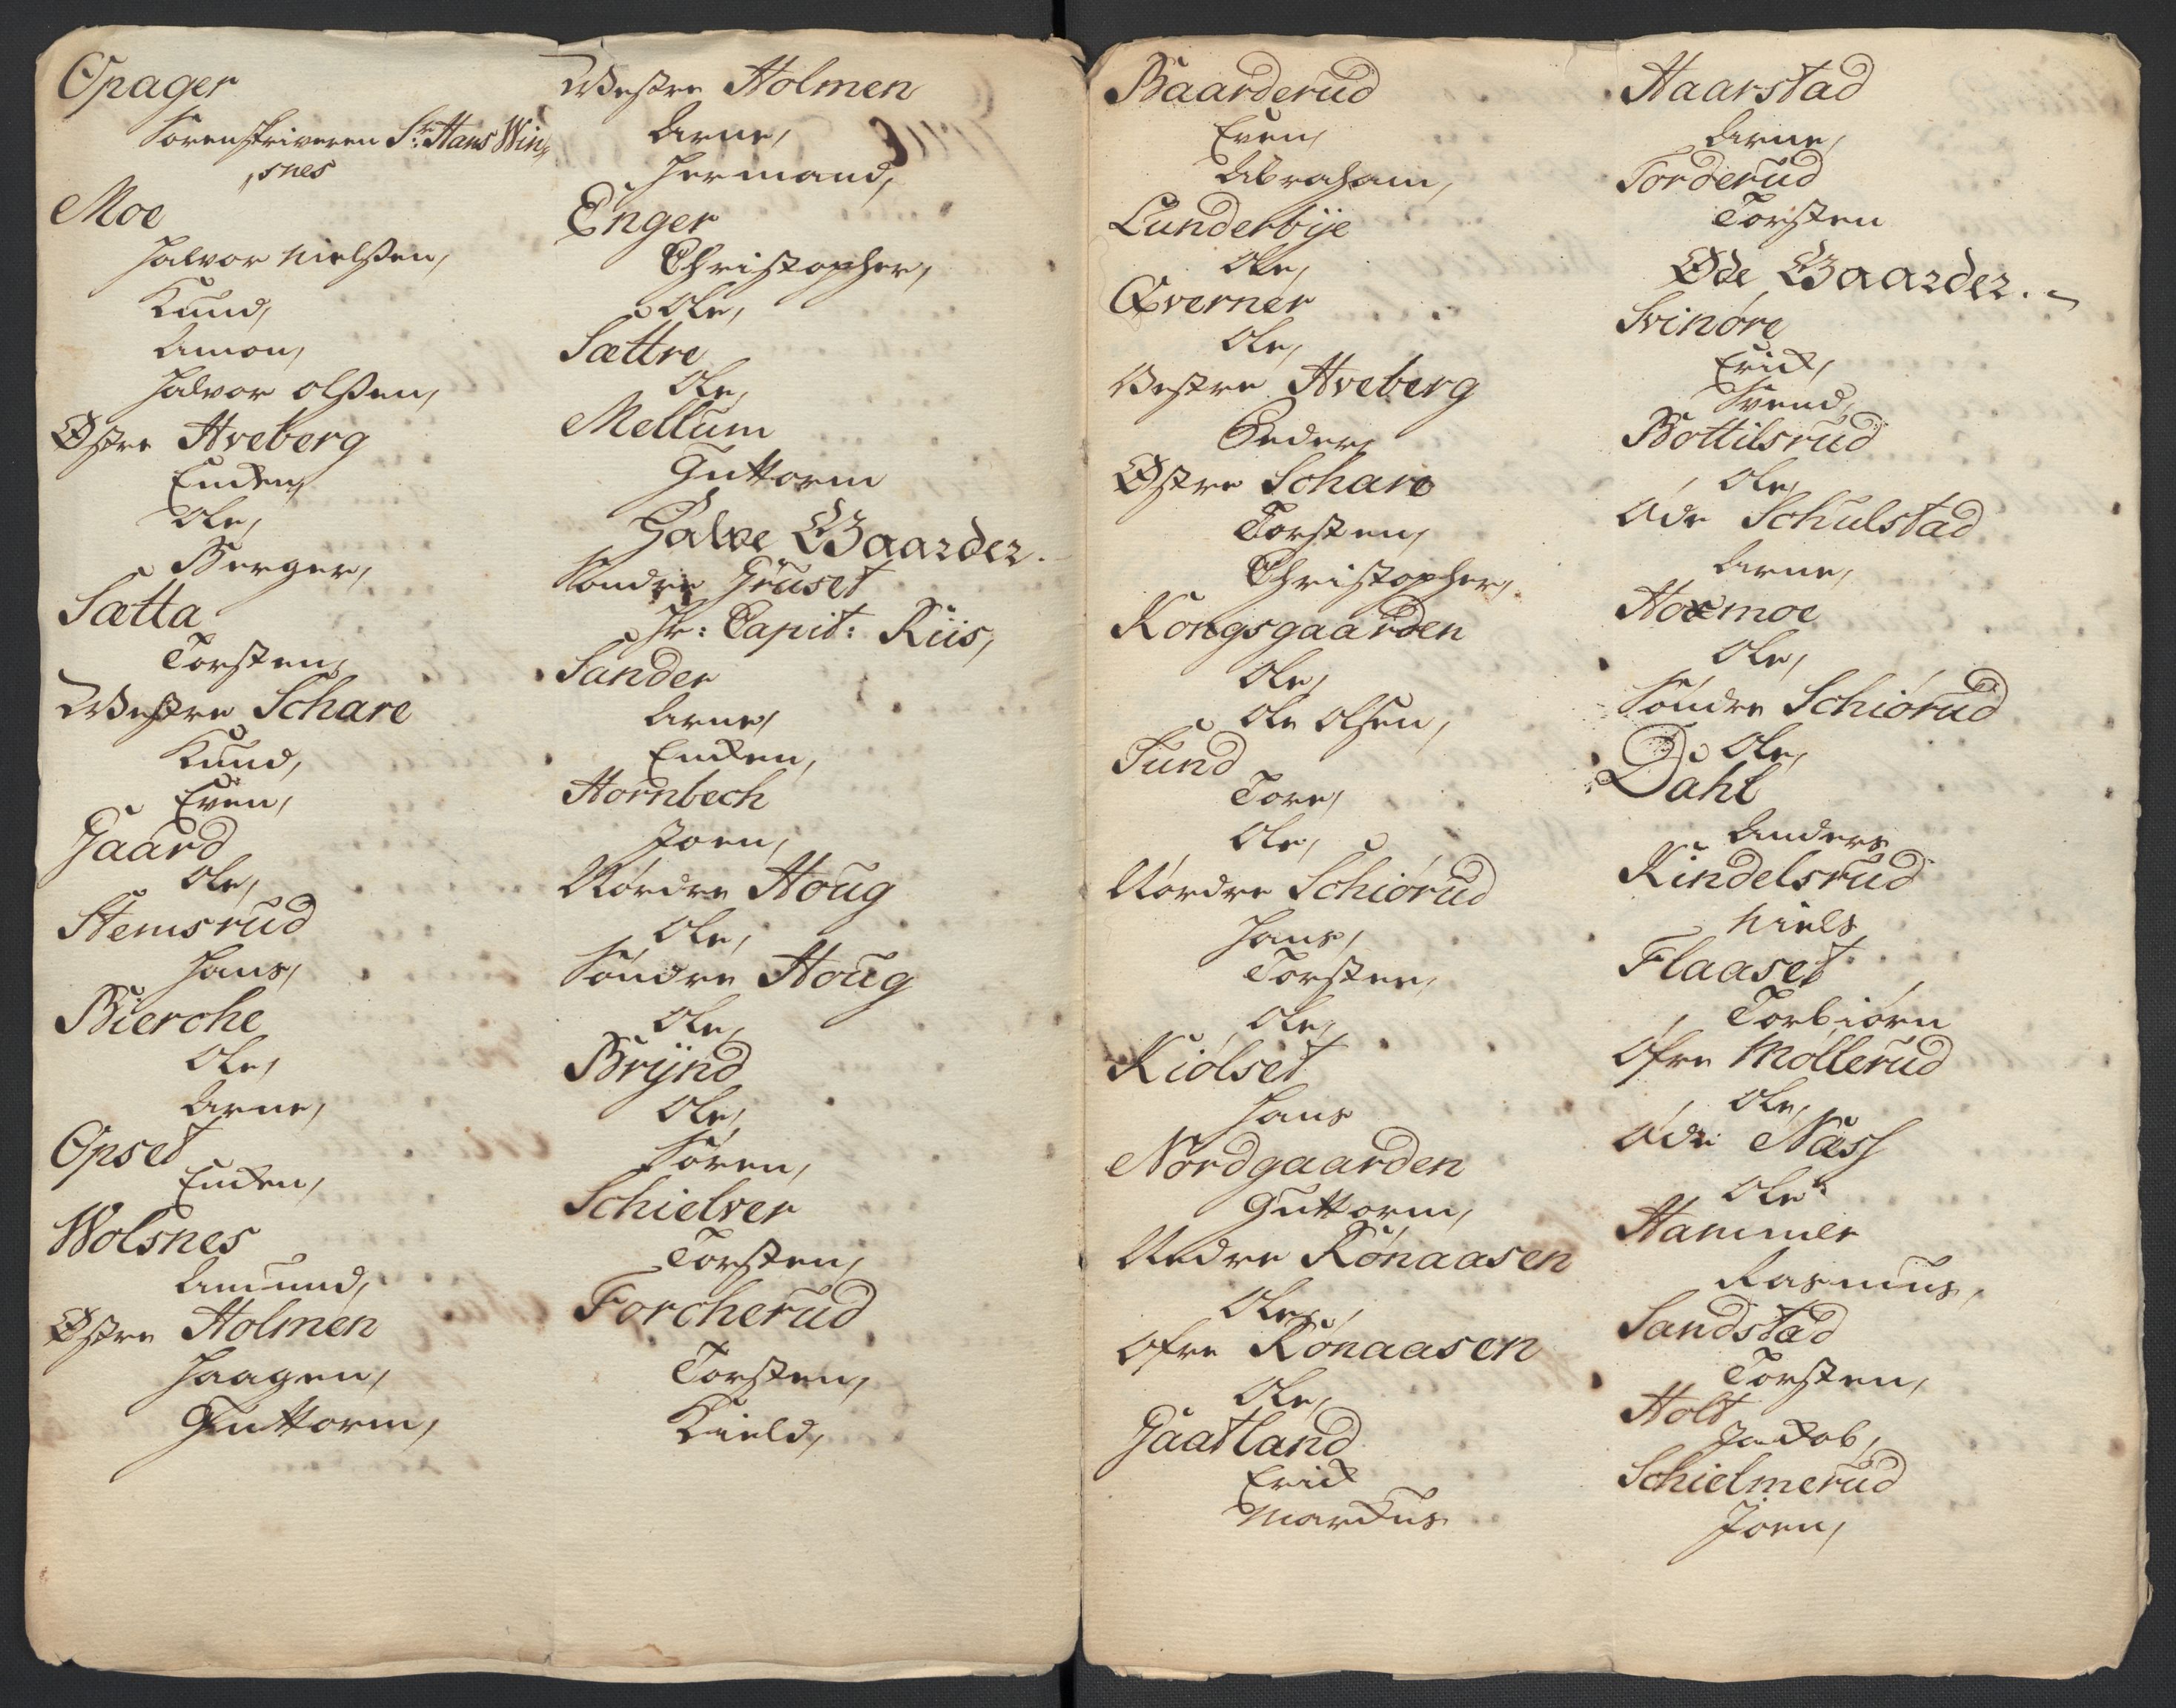 Opager
Sorenskriveren Sr. Hans Win,
,snes
Moe
Halvor Nielsen,
Knud,
Amon,
Halvor Olsen,
Østre Hveberg
Enken,
Ole,
Berger,
Sætta
Torsten,
Westre Schare
Knud,
Even,
Gaard
Ole,
Stemsrud
Hans,
Bierche
Ole,
Arne,
Opset
Enken,
Wolsnes
Amund,
Østre Holmen
Haagen,
Guttorm,
Westre Holmen
Arne,
Hermand,
Enger
Christopher,
Ole,
Sættre
Ole,
Mellum
Guttorm
Halve Gaarder.
Søndre Gruset
Hr: Capit: Riis,
Sander
Arne,
Enken,
Hornbech
Joen,
Nordre Houg
Ole,
Søndre Houg
Ole,
Brÿnd
Ole,
Søren,
Schielver
Torsten,
Forcherud
Torsten,
Kield,
Baarderud
Even,
Abraham,
Lunderbÿe
Ole,
Qverner
Ole,
Vestre Hveberg
Peder,
Østre Schare
Torsten,
Christopher,
Kongsgaarden
Ole,
Ole Olsen,
Sund
Tore,
Ole,
Nordre Schiørud
Hans,
Torsten,
Ole,
Kiølset
Hans
Nordgaarden
Guttorm,
Nedre Rønaasen
Ole,
Øfre Rønaasen
Ole,
Gaatland
Erick
Markus
Haarstad
Arne,
Torderud
Torsten
Øde Gaarder.
Svinøre
Erick,
Svend,
Bottilsrud
Ole,
Øde Schulstad
Arne,
Hoxmoe
Ole,
Søndre Schiørud
Ole,
Dahl
Anders
Kindelsrud
Niels
Flaaset
Torbiørn
Øfre Møllerud
Ole,
Øde Næss
Ole
Hammer
Rasmus,
Sandstad
Torsten,
Holt
Jackob,
Schielmerud
Joen,